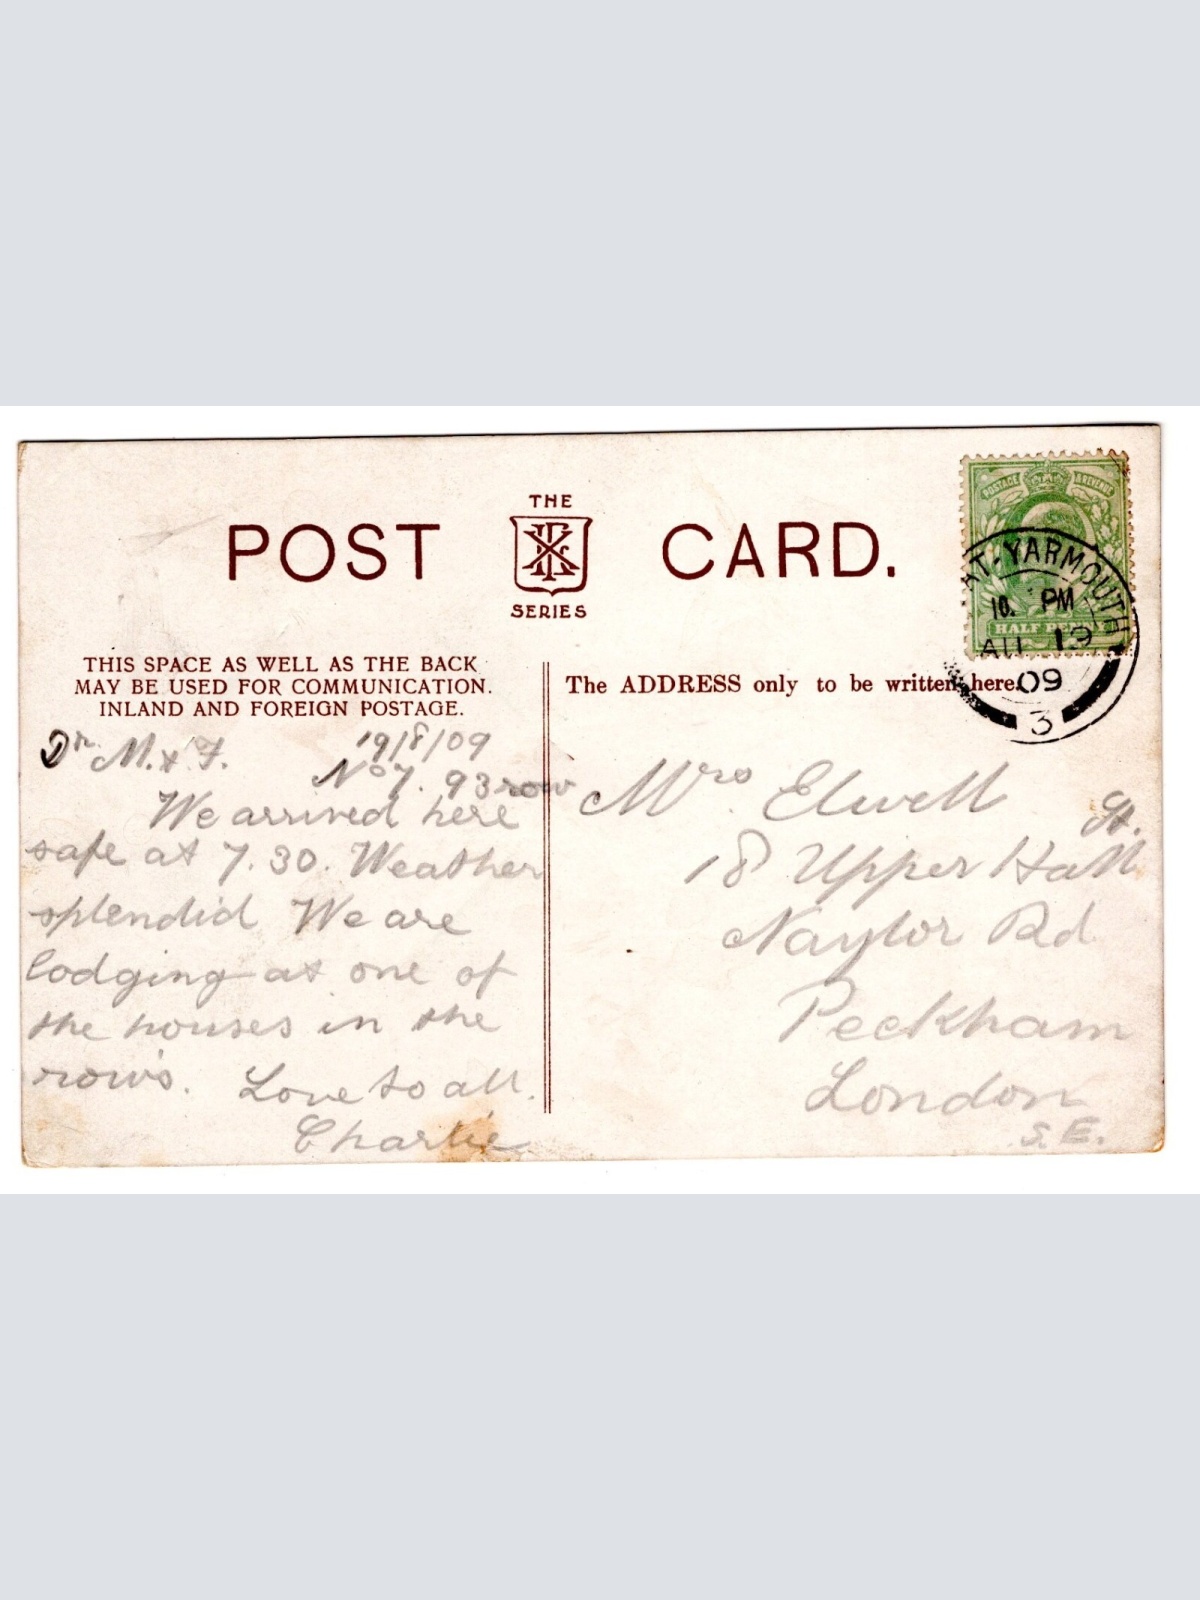 THE
POST CARD.
SERIES
POSTAGE & REVENUE
GT. YARMOUTH
10. PM
AU 19
09
3
HALF PENNY
THIS SPACE AS WELL AS THE BACK
MAY BE USED FOR COMMUNICATION.
INLAND AND FOREIGN POSTAGE.
The ADDRESS only to be written here.
Dr M. & F. 19/8/09
No 7. 93 row
We arrived here
safe at 7.30. Weather
splendid We are
lodging at one of
the houses in the
rows. Love to all.
Charlie
Mrs. Elwell
18 Upper Hall St.
Naylor Rd
Peckham
London
S.E.